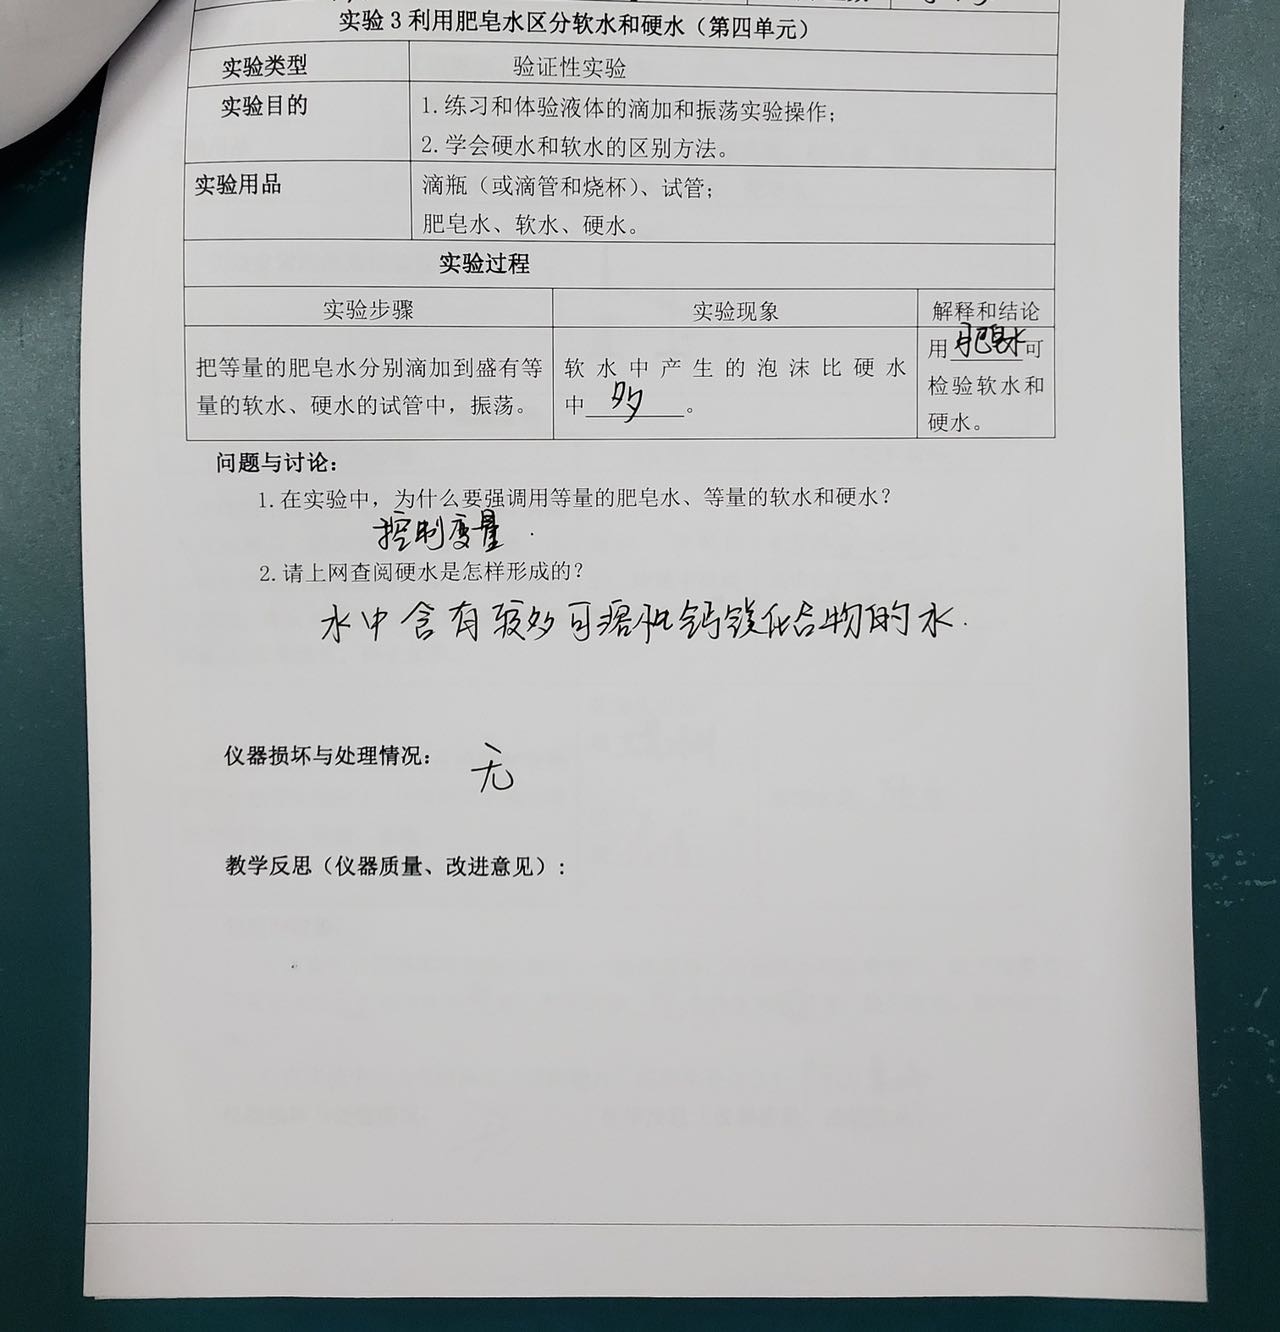 实验 3 利用肥皂水区分软水和硬水（第四单元）
实验类型 验证性实验
实验目的 1. 练习和体验液体的滴加和振荡实验操作；
2. 学会硬水和软水的区别方法。
实验用品 滴瓶（或滴管和烧杯）、试管；
肥皂水、软水、硬水。
实验过程
实验步骤 实验现象 解释和结论
把等量的肥皂水分别滴加到盛有等
量的软水、硬水的试管中，振荡。
软水中产生的泡沫比硬水
中 多 。
用 肥皂水 可
检验软水和
硬水。
问题与讨论：
1. 在实验中，为什么要强调用等量的肥皂水、等量的软水和硬水？
控制变量.
2. 请上网查阅硬水是怎样形成的？
水中含有较多可溶性钙镁化合物的水.
仪器损坏与处理情况： 无
教学反思（仪器质量、改进意见）：